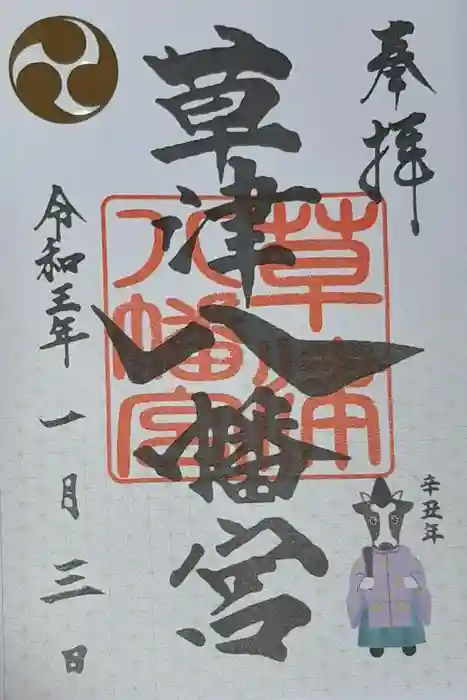 奉拝
草津八幡宮
草津
八幡宮
令和三年一月三日
辛丑年